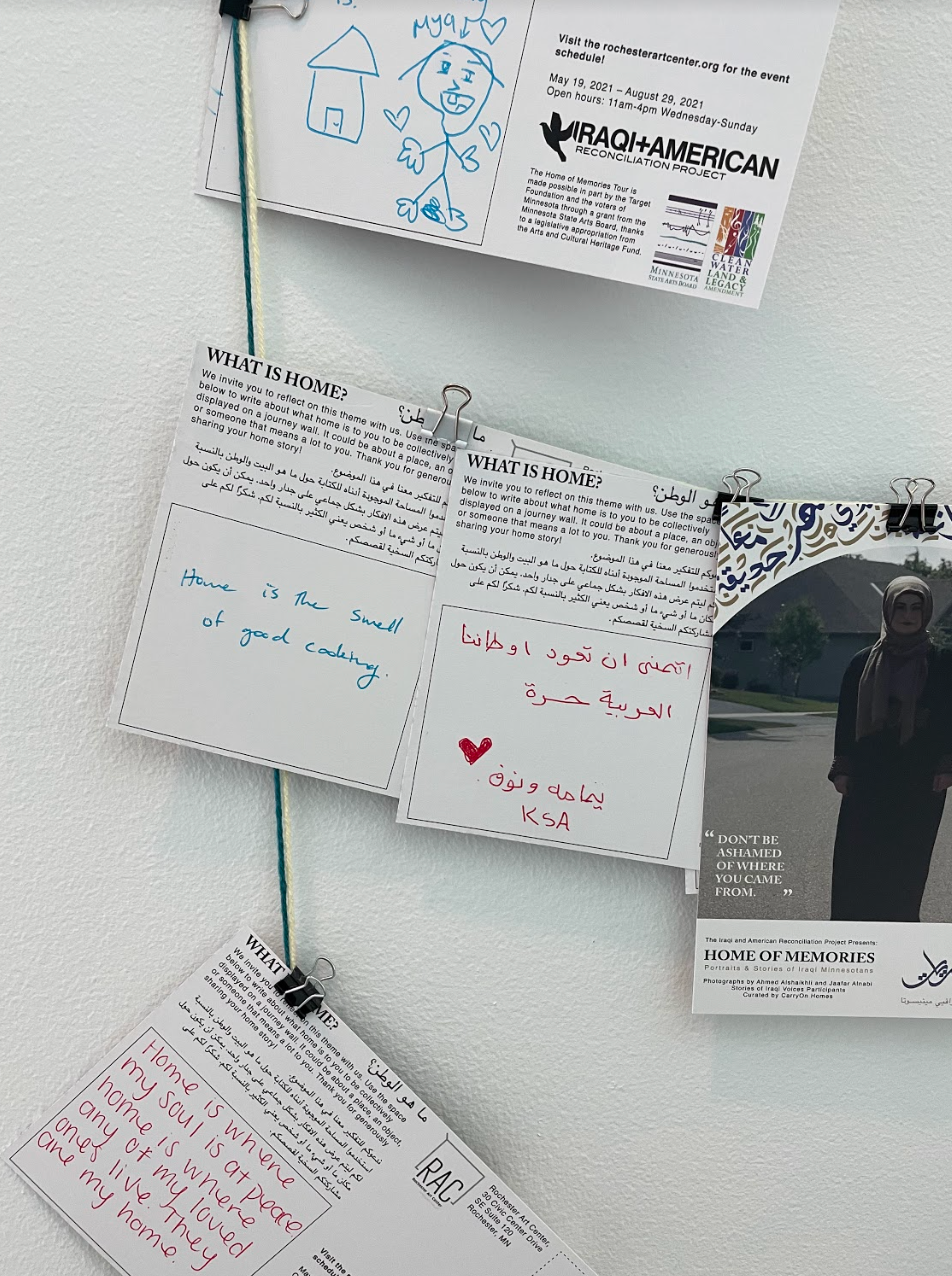 is.
Mya
Visit the rochesterartcenter.org for the event
schedule!
May 19, 2021 – August 29, 2021
Open hours: 11am-4pm Wednesday-Sunday
IRAQI+AMERICAN
RECONCILIATION PROJECT
The Home of Memories Tour is
made possible in part by the Target
Foundation and the voters of
Minnesota through a grant from the
Minnesota State Arts Board, thanks
to a legislative appropriation from
the Arts and Cultural Heritage Fund.
MINNESOTA
STATE ARTS BOARD
CLEAN
WATER
LAND &
LEGACY
AMENDMENT
WHAT IS HOME?
ما
طن؟
We invite you to reflect on this theme with us. Use the spa
below to write about what home is to you to be collectively
displayed on a journey wall. It could be about a place, an o
or someone that means a lot to you. Thank you for genero
sharing your home story!
للتفكير معنا في هذا الموضوع.
دموا المساحة الموجودة أدناه للكتابة حول ما هو البيت والوطن بالنسبة
يتم عرض هذه الافكار بشكل جماعي على جدار واحد. يمكن أن يكون حول
ما أو شيء ما أو شخص يعني الكثير بالنسبة لكم. شكرًا لكم على
السخية لقصصكم.
Home is the smell
of good cooking.
WHAT IS HOME?
هو الوطن؟
We invite you to reflect on this theme with us. Use the spac
below to write about what home is to you to be collectively
displayed on a journey wall. It could be about a place, an obj
or someone that means a lot to you. Thank you for generous
sharing your home story!
وكم للتفكير معنا في هذا الموضوع.
تخدموا المساحة الموجودة أدناه للكتابة حول ما هو البيت والوطن بالنسبة
م ليتم عرض هذه الافكار بشكل جماعي على جدار واحد. يمكن أن يكون حول
كان ما أو شيء ما أو شخص يعني الكثير بالنسبة لكم. شكرًا لكم على
شاركتكم السخية لقصصكم.
اتمنى ان تعود اوطاننا
العربية حرة
يمامه ونوف
KSA
“ DON'T BE
ASHAMED
OF WHERE
YOU CAME
FROM. ”
The Iraqi and American Reconciliation Project Presents:
HOME OF MEMORIES
Portraits & Stories of Iraqi Minnesotans
Photographs by Ahmed Alshaikhli and Jaafar Alnabi
Stories of Iraqi Voices Participants
Curated by CarryOn Homes
WHAT
ME?
ما هو الوطن؟
We invite you to reflect on this theme with us. Use the space
below to write about what home is to you to be collectively
displayed on a journey wall. It could be about a place, an object,
or someone that means a lot to you. Thank you for generously
sharing your home story!
ندعوكم للتفكير معنا في هذا الموضوع.
استخدموا المساحة الموجودة أدناه للكتابة حول ما هو البيت والوطن بالنسبة
لكم ليتم عرض هذه الافكار بشكل جماعي على جدار واحد. يمكن أن يكون حول
مكان ما أو شيء ما أو شخص يعني الكثير بالنسبة لكم. شكرًا لكم على
مشاركتكم السخية لقصصكم.
Home is where
my soul is at peace
home is where
any of my loved
ones live. They
are my home.
RAC
Rochester Art Center
Rochester Art Center,
30 Civic Center Drive
SE Suite 120
Rochester, MN
Visit the
schedule